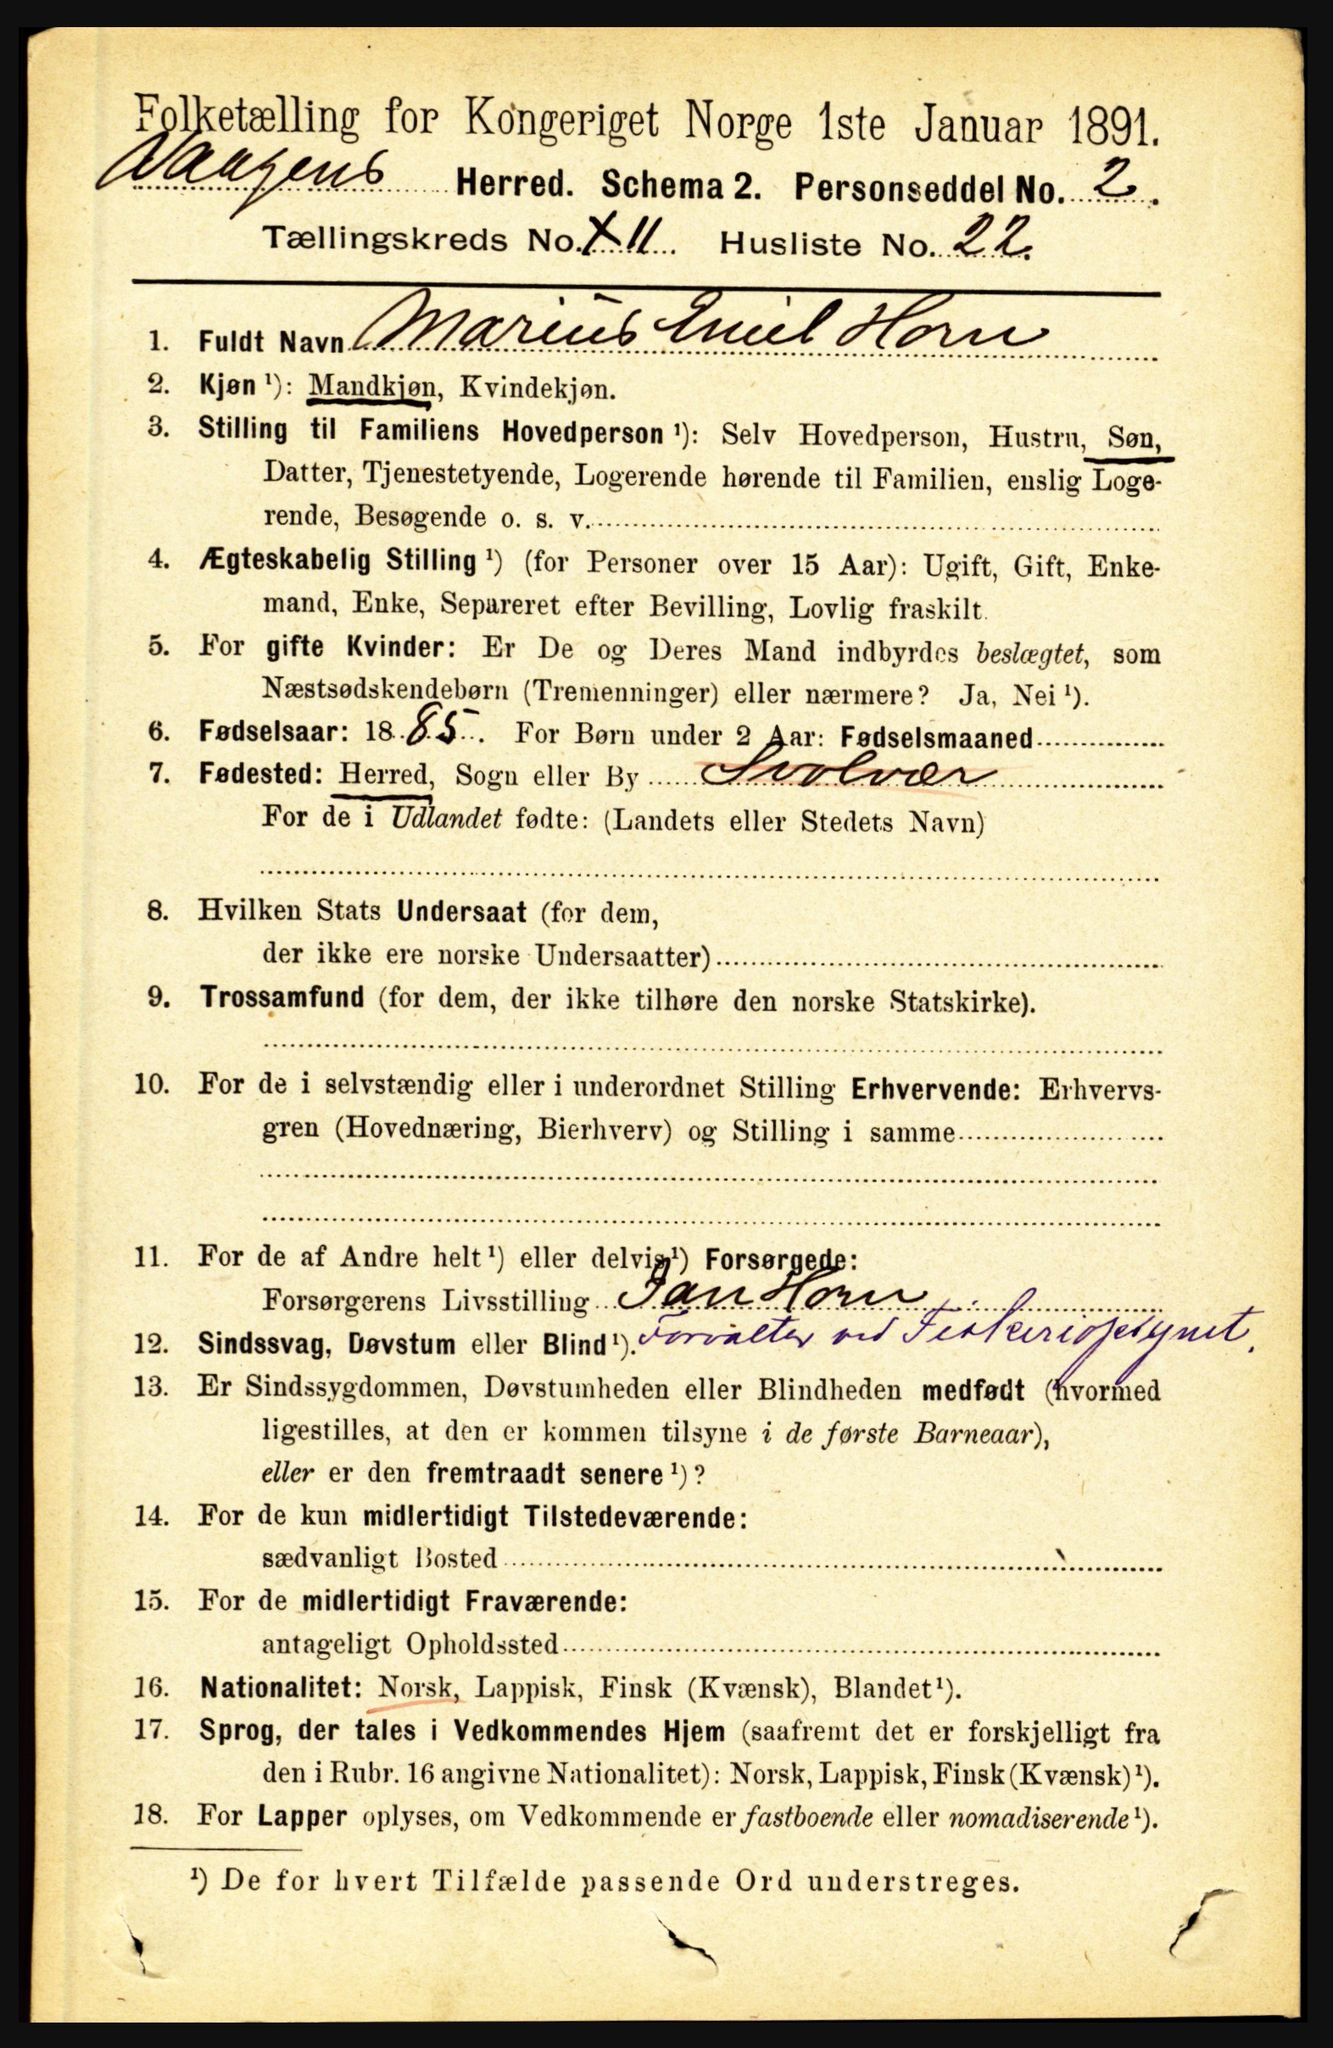 Folketælling for Kongeriget Norge 1ste Januar 1891.
Vaagens Herred. Schema 2. Personseddel No. 2.
Tællingskreds No. XII Husliste No. 22.
1. Fuldt Navn Marius Emil Horn
2. Kjøn ¹): Mandkjøn, Kvindekjøn.
3. Stilling til Familiens Hovedperson ¹): Selv Hovedperson, Hustru, Søn,
Datter, Tjenestetyende, Logerende hørende til Familien, enslig Loge-
rende, Besøgende o. s. v.
4. Ægteskabelig Stilling ¹) (for Personer over 15 Aar): Ugift, Gift, Enke-
mand, Enke, Separeret efter Bevilling, Lovlig fraskilt.
5. For gifte Kvinder: Er De og Deres Mand indbyrdes beslægtet, som
Næstsødskendebørn (Tremenninger) eller nærmere? Ja, Nei ¹).
6. Fødselsaar: 1885. For Børn under 2 Aar: Fødselsmaaned
7. Fødested: Herred, Sogn eller By Svolvær
For de i Udlandet fødte: (Landets eller Stedets Navn)
8. Hvilken Stats Undersaat (for dem,
der ikke ere norske Undersaatter)
9. Trossamfund (for dem, der ikke tilhøre den norske Statskirke).
10. For de i selvstændig eller i underordnet Stilling Erhvervende: Erhvervs-
gren (Hovednæring, Bierhverv) og Stilling i samme
11. For de af Andre helt ¹) eller delvis ¹) Forsørgede:
Forsørgerens Livsstilling Jan Horn
Forvalter ved Fiskeriopsynet.
12. Sindssvag, Døvstum eller Blind ¹).
13. Er Sindssygdommen, Døvstumheden eller Blindheden medfødt (hvormed
ligestilles, at den er kommen tilsyne i de første Barneaar),
eller er den fremtraadt senere ¹)?
14. For de kun midlertidigt Tilstedeværende:
sædvanligt Bosted
15. For de midlertidigt Fraværende:
antageligt Opholdssted
16. Nationalitet: Norsk, Lappisk, Finsk (Kvænsk), Blandet ¹).
17. Sprog, der tales i Vedkommendes Hjem (saafremt det er forskjelligt fra
den i Rubr. 16 angivne Nationalitet): Norsk, Lappisk, Finsk (Kvænsk) ¹).
18. For Lapper oplyses, om Vedkommende er fastboende eller nomadiserende ¹).
¹) De for hvert Tilfælde passende Ord understreges.